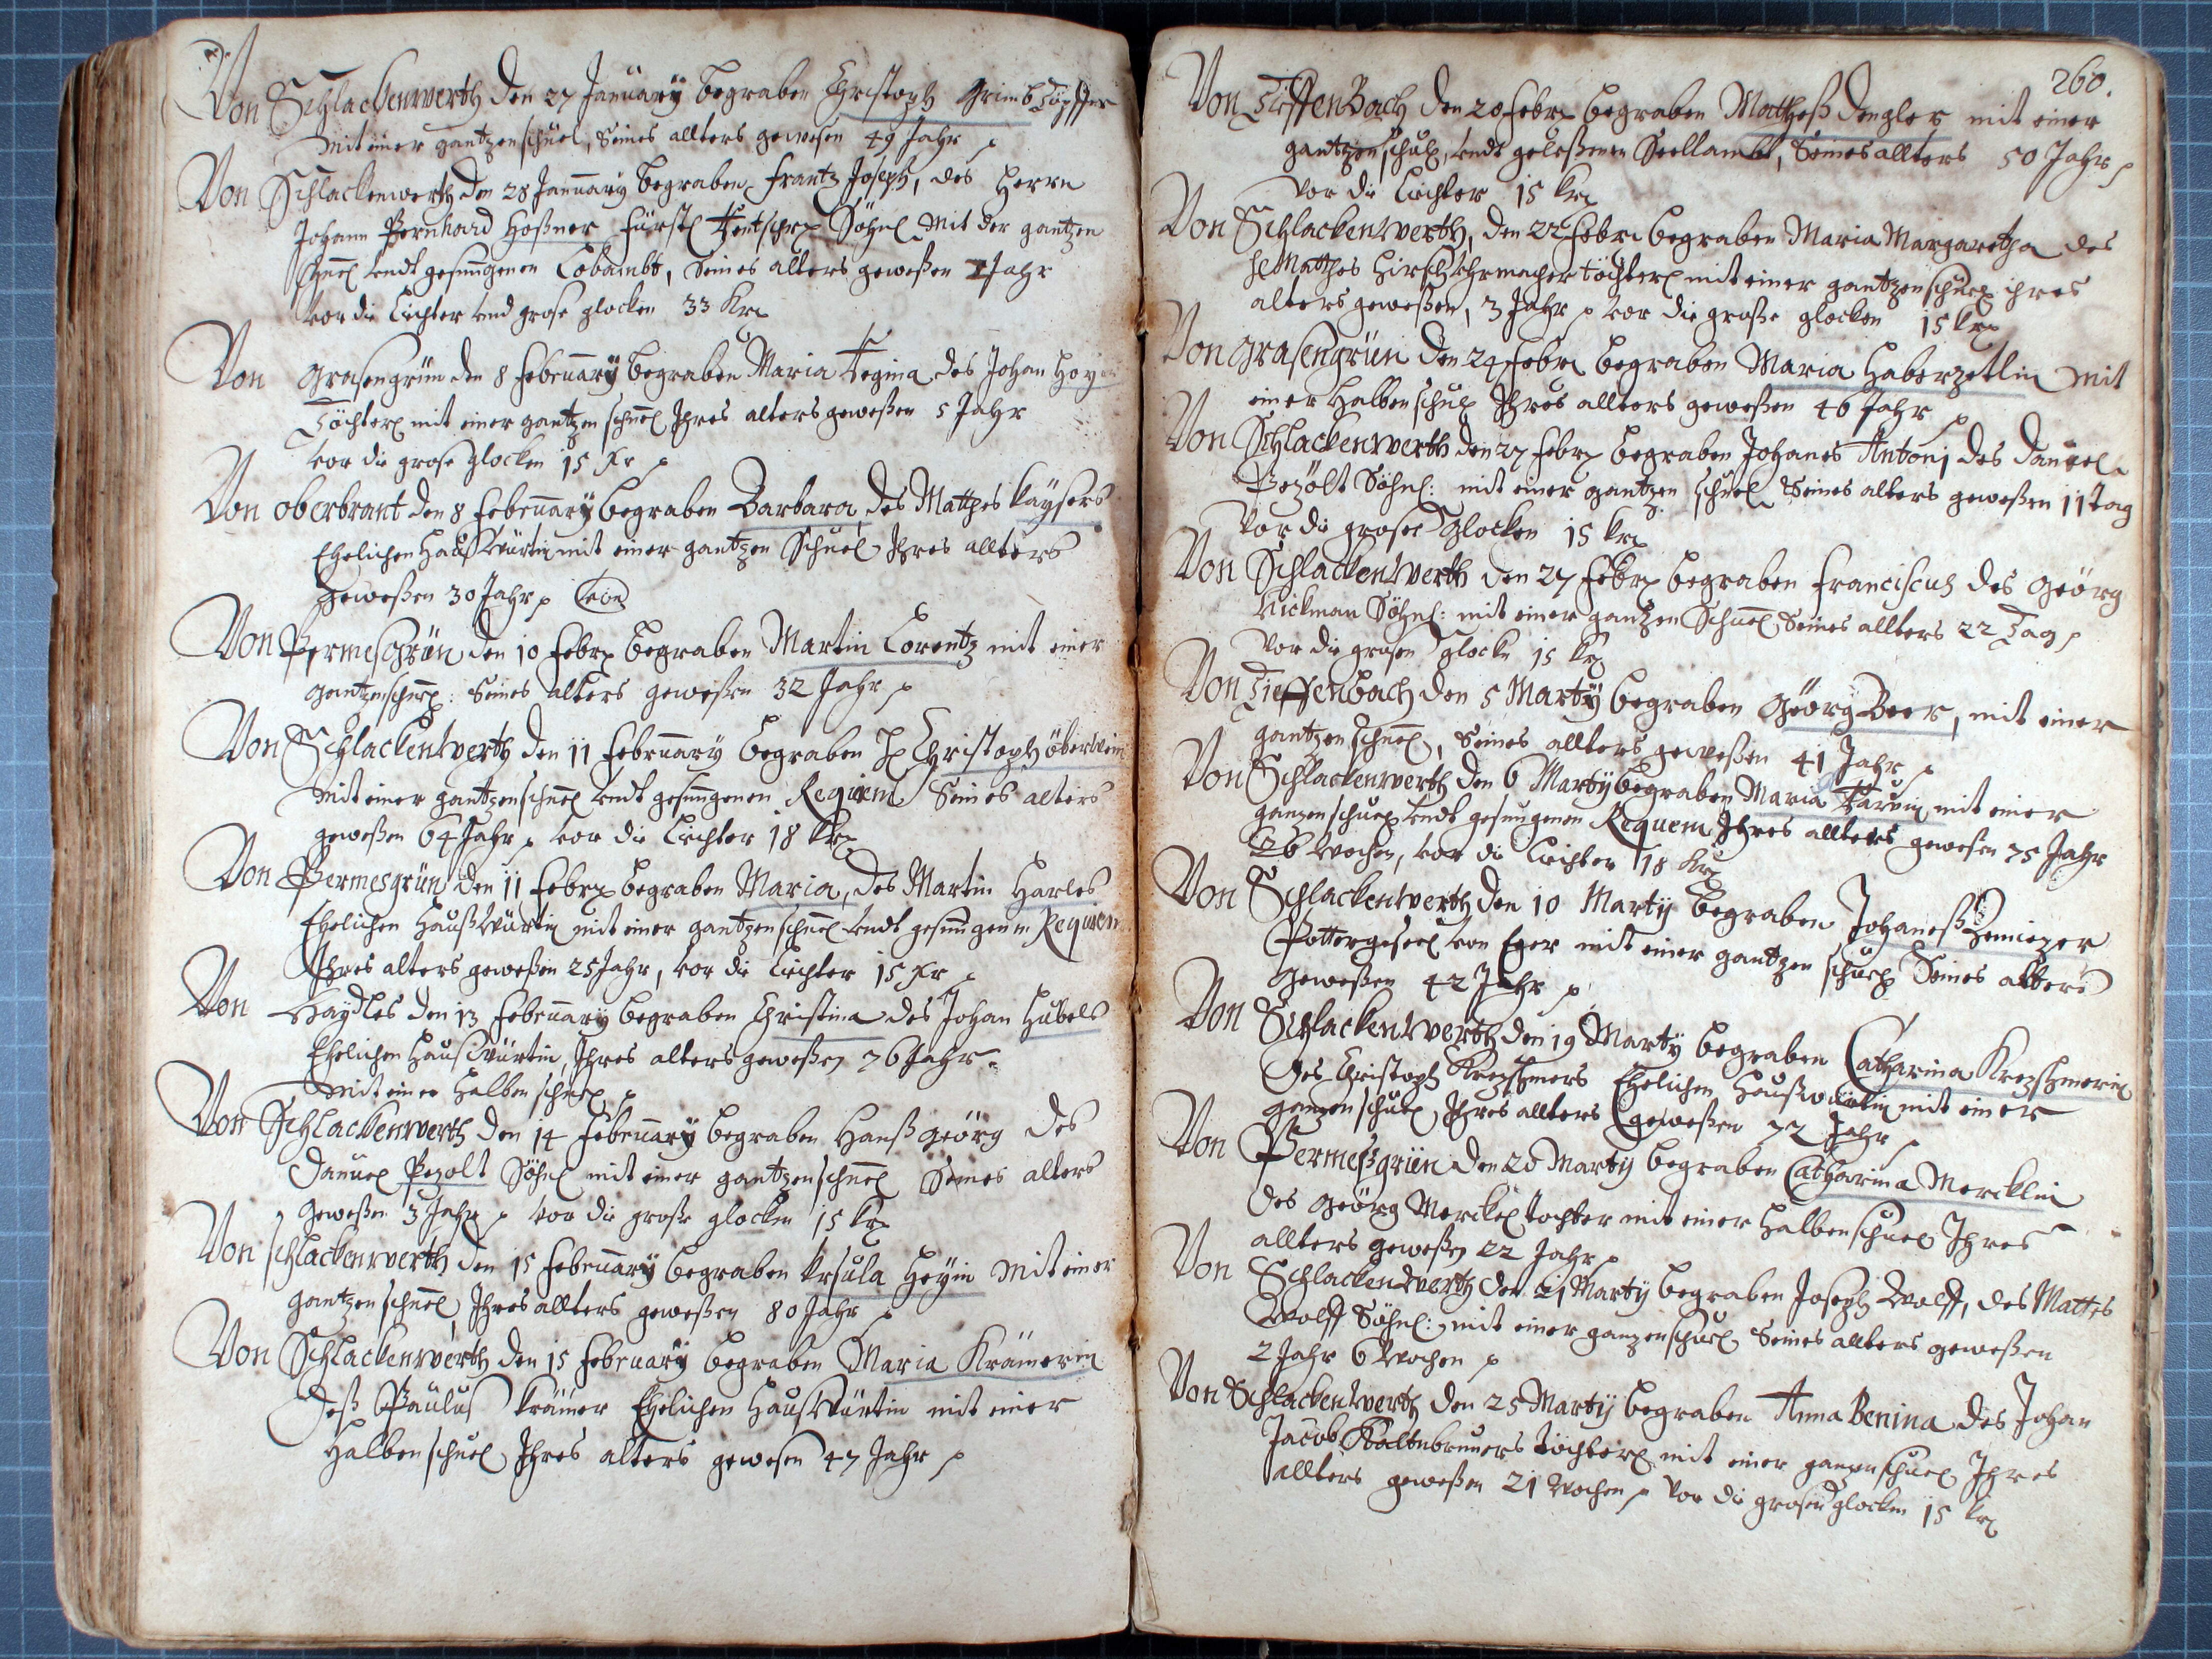 Von Schlackenwerth den 27 January begraben Christoph Grimb Töpffer
mit einer gantzen schuel, Seines allters gewesen 49 Jahr p
Von Schlackenwerth den 28 January begraben Frantz Joseph, des Herrn
Johann Bernhard Hoßner Fürstl Söhnl mit der gantzen
schuel undt gesungenen Lobambt, Seines alters geweßen 1 Jahr
vor die Liechter und grose glocken 33 Kr
Von Grasengrün den 8 February begraben Maria Regina des Johan
Töchterl mit einer gantzen schuel Ihres alters geweßen 5 Jahr
vor die grose Glocken 15 Kr p
Von oberbrant den 8 February begraben Barbara des Matthes Kaysers
Ehelichen Haußwürtin mit einer gantzen Schuel Ihres allters
geweßen 30 Jahr p
Von Permesgrün den 10 Febr begraben Martin Lorentz mit einer
gantzen schuel: Seines alters geweßen 32 Jahr p
Von Schlackenwerth den 11 February begraben H Christoph öberwein
mit einer gantzen schuel undt gesungenen Requiem Seines alters
geweßen 64 Jahr p vor die Liechter 18 Kr
Von Permesgrün den 11 Febr begraben Maria, des Martin Harles
Ehelichen Haußwürtin mit einer gantzen schuel undt gesungenen Requiem
Ihres alters geweßen 25 Jahr, vor die Liechter 15 Kr p
Von Haydles den 13 February begraben Christina des Johan Hubels
Ehelichen Haußwürtin, Ihres alters geweßen 76 Jahr
mit einer Halben schuel p
Von Schlackenwerth den 14 February begraben Hanß Geörg des
Danuel Pezolt Söhnl mit einer gantzen schuel Seines alters
geweßen 3 Jahr p vor die große glocken 15 Kr
Von schlackenwerth den 15 February begraben Ursula Heyin mit einer
gantzen schuel, Ihres allters geweßen 80 Jahr p
Von Schlackenwerth den 15 February begraben Maria Krämerin
deß Paulus Krämer Ehelichen Haußwürtin mit einer
Halben schuel Ihres alters gewesen 47 Jahr p
260.
Von TieffenBach den 20 Febr begraben Mattheß Dengler mit einer
gantzen schul, undt geleßenen Seellambt, Seines allters 50 Jahr p
vor die Liechter 15 Kr
Von Schlackenwerth, den 22 Febr begraben Maria Margaretha des
H Matthes Hirsch Uhrmacher töchterl mit einer gantzen schuel ihres
alters geweßen, 3 Jahr p vor die große glocken 15 Kr
Von Grasengrün den 24 Febr begraben Maria Haberzetlin mit
einer Halben schul Ihres allters geweßen 46 Jahr p
Von Schlackenwerth den 27 Febr begraben Johanes Antoni des Danuel
Pezölt Söhnl: mit einer gantzen schuel Seines alters geweßen 11 tag
vor die grosse Glocken 15 Kr
Von Schlackenwerth den 27 Febr begraben Franciscus des Geörg
Rickman Söhnl: mit einer gantzen Schuel Seines allters 22 Tag p
vor die grosen glocke 15 Kr
Von Tieffenbach den 5 Marty begraben Geörg Beer, mit einer
gantzen schuel, Seines allters geweßen 41 Jahr p
Von Schlackenwerth den 6 Marty begraben Maria mit einer
ganzen schuel undt gesungenen Requem Ihres allters gewesen 75 Jahr
26 wochen, vor die Liechter 18 Kr
Von Schlackenwerth den 10 Marty begraben Johaneß
Pottergesel von Eger mit einer gantzen schuel Seines alters
geweßen 42 Jahr p
Von Schlackenwerth den 19 Marty begraben Catharina Krezschmerin
des Christoph Krezschmers Ehelichen Haußwürtin mit einer
ganzen schuel, Ihres allters geweßen 72 Jahr p
Von Permeßgrün den 20 Marty begraben Catharina Mercklin
des Geörg Merckel tochter mit einer Halben schuel Ihres
allters geweßen 22 Jahr p
Von Schlackenwerth den 21 Marty begraben Joseph Wolff, des Mattes
Wolff Söhnl: mit einer ganzen schuel Seines allters geweßen
2 Jahr 6 Wochen p
Von Schlackenwerth den 25 Marty begraben Anna Benina des Johan
Jacob Kaltnbruners töchterl mit einer ganzen schuel Ihres
allters geweßen 21 Wochen p vor die grosen glocken 15 Kr